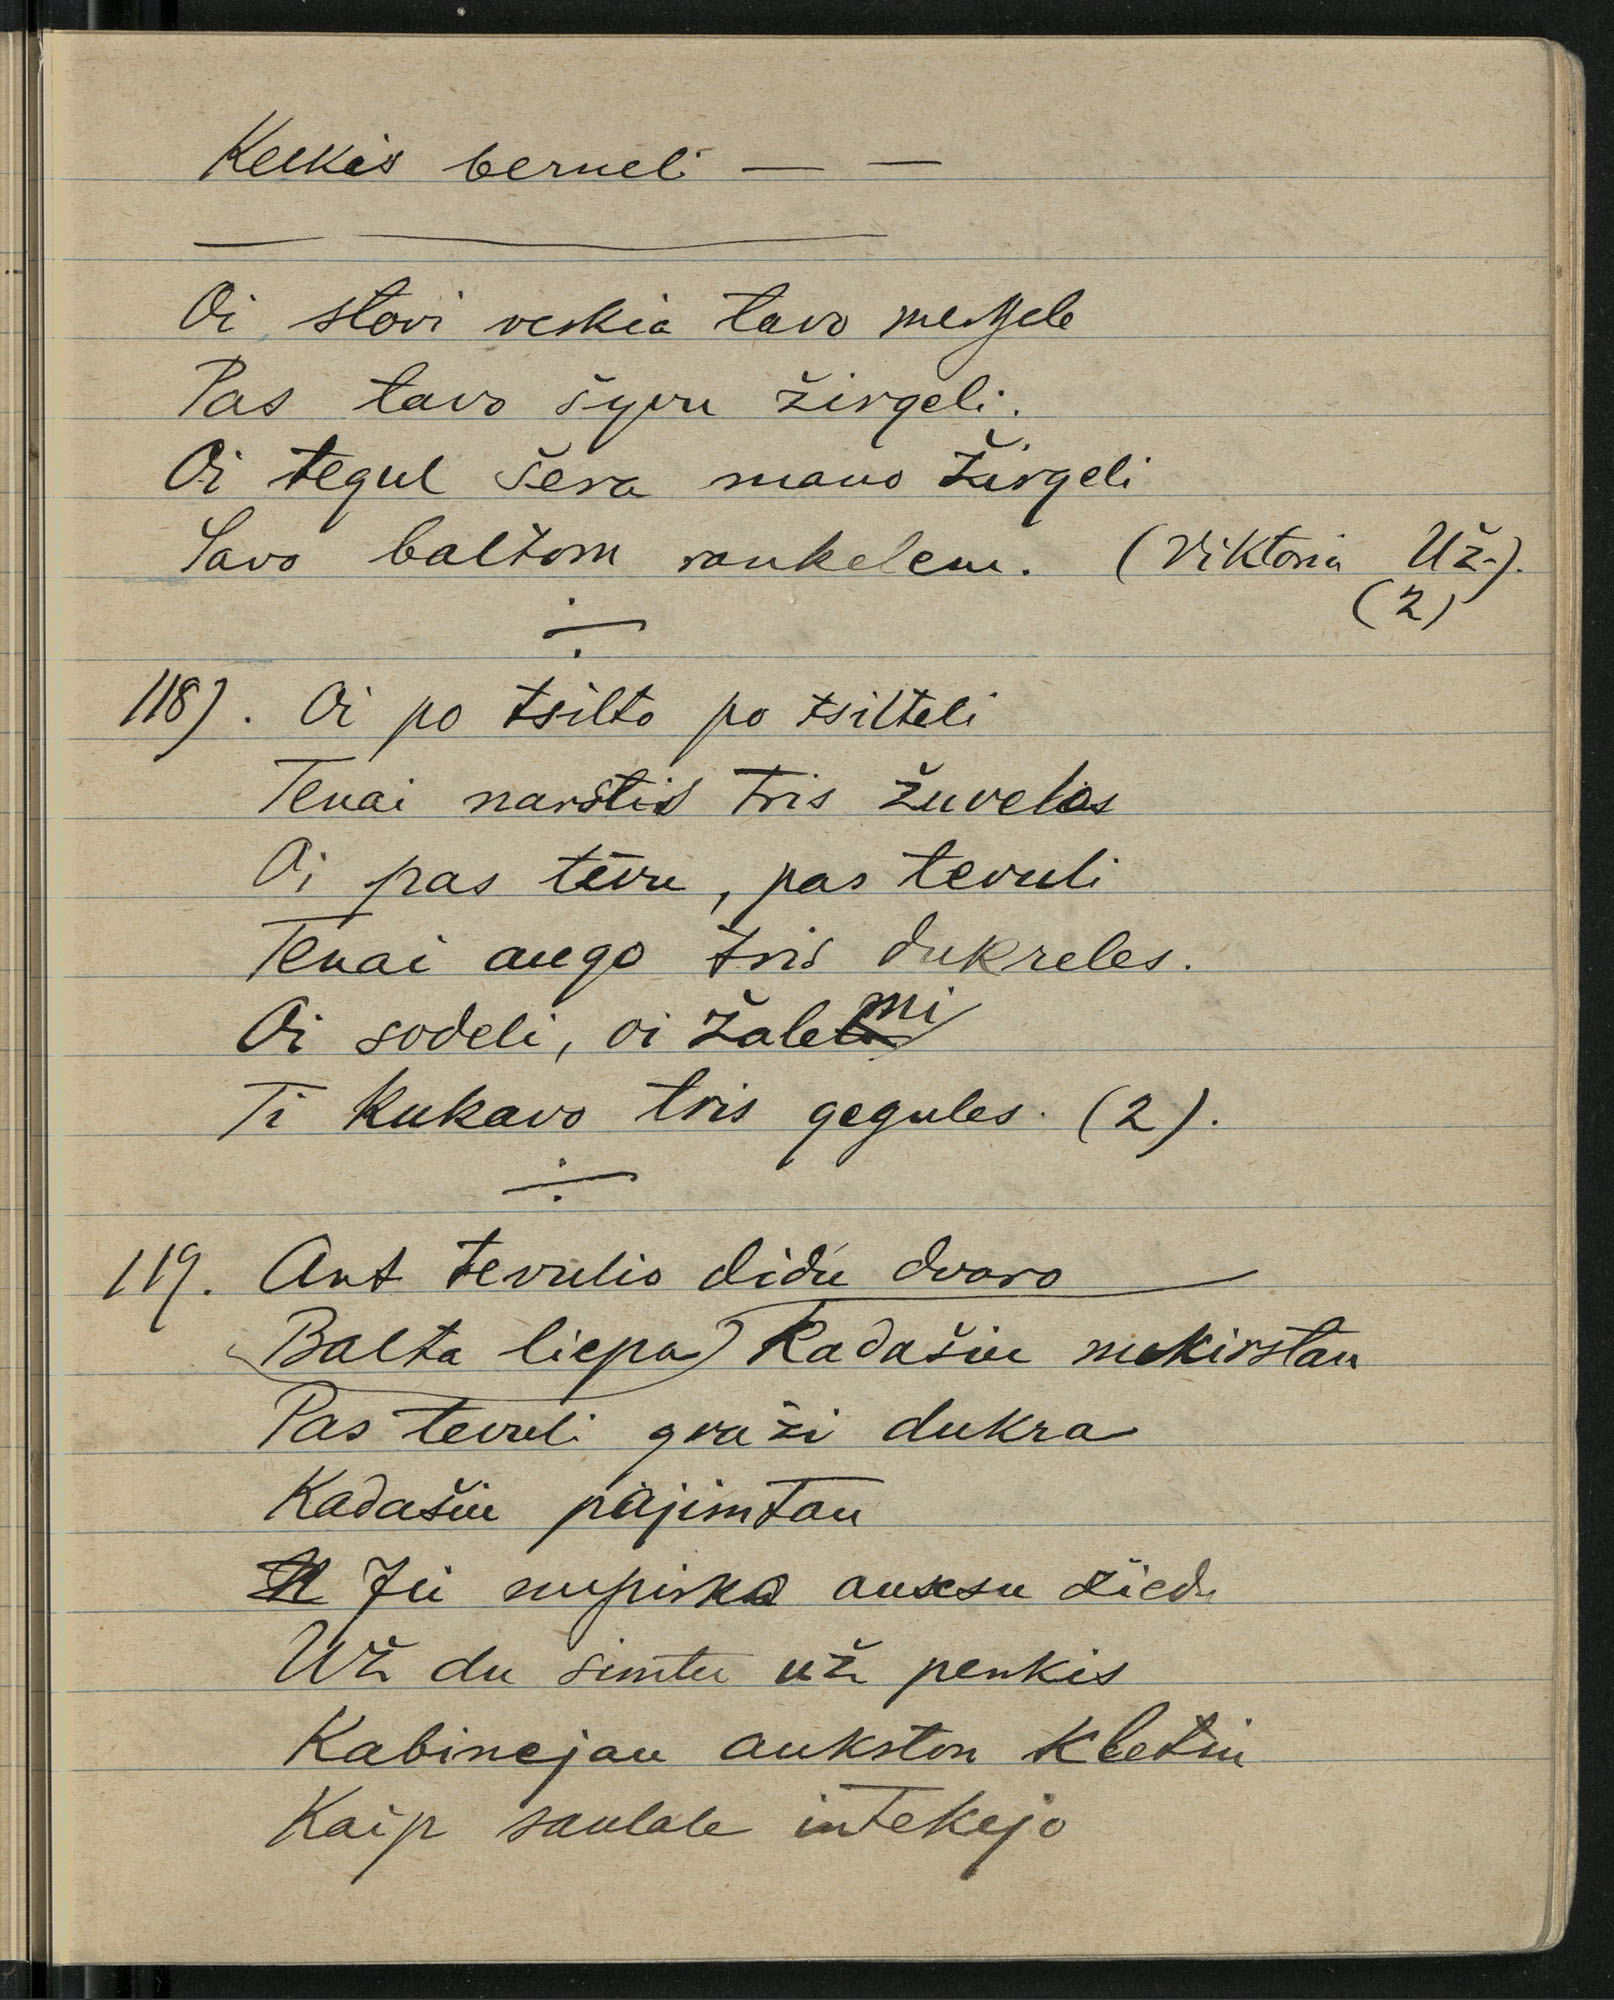 Kelkis berneli — —
Oi stovi verkia tavo mergele
Pas tavo šyvu žirgeli.
Oi tegul šera mano žirgeli
Savo baltom rankelem. (Viktoria Už.).
(2)
118). Oi po tsilto po tsilteli
Tenai narstis tris žuveles
Oi pas tēvu, pas tevuli
Tenai augo tris dukreles.
Oi sodeli, oi žalemi
Ti kukavo tris gegules. (2).
119. Ant tevulio didu dvaro
Balta liepa) Kadašiu nukirstau
Pas tevuli graži dukra
Kadašiu pajimtau
Jii nupirka auksu žiedu
Už du šimtu už penkis
Kabinejau aukston kletin
Kaip saulale intekejo